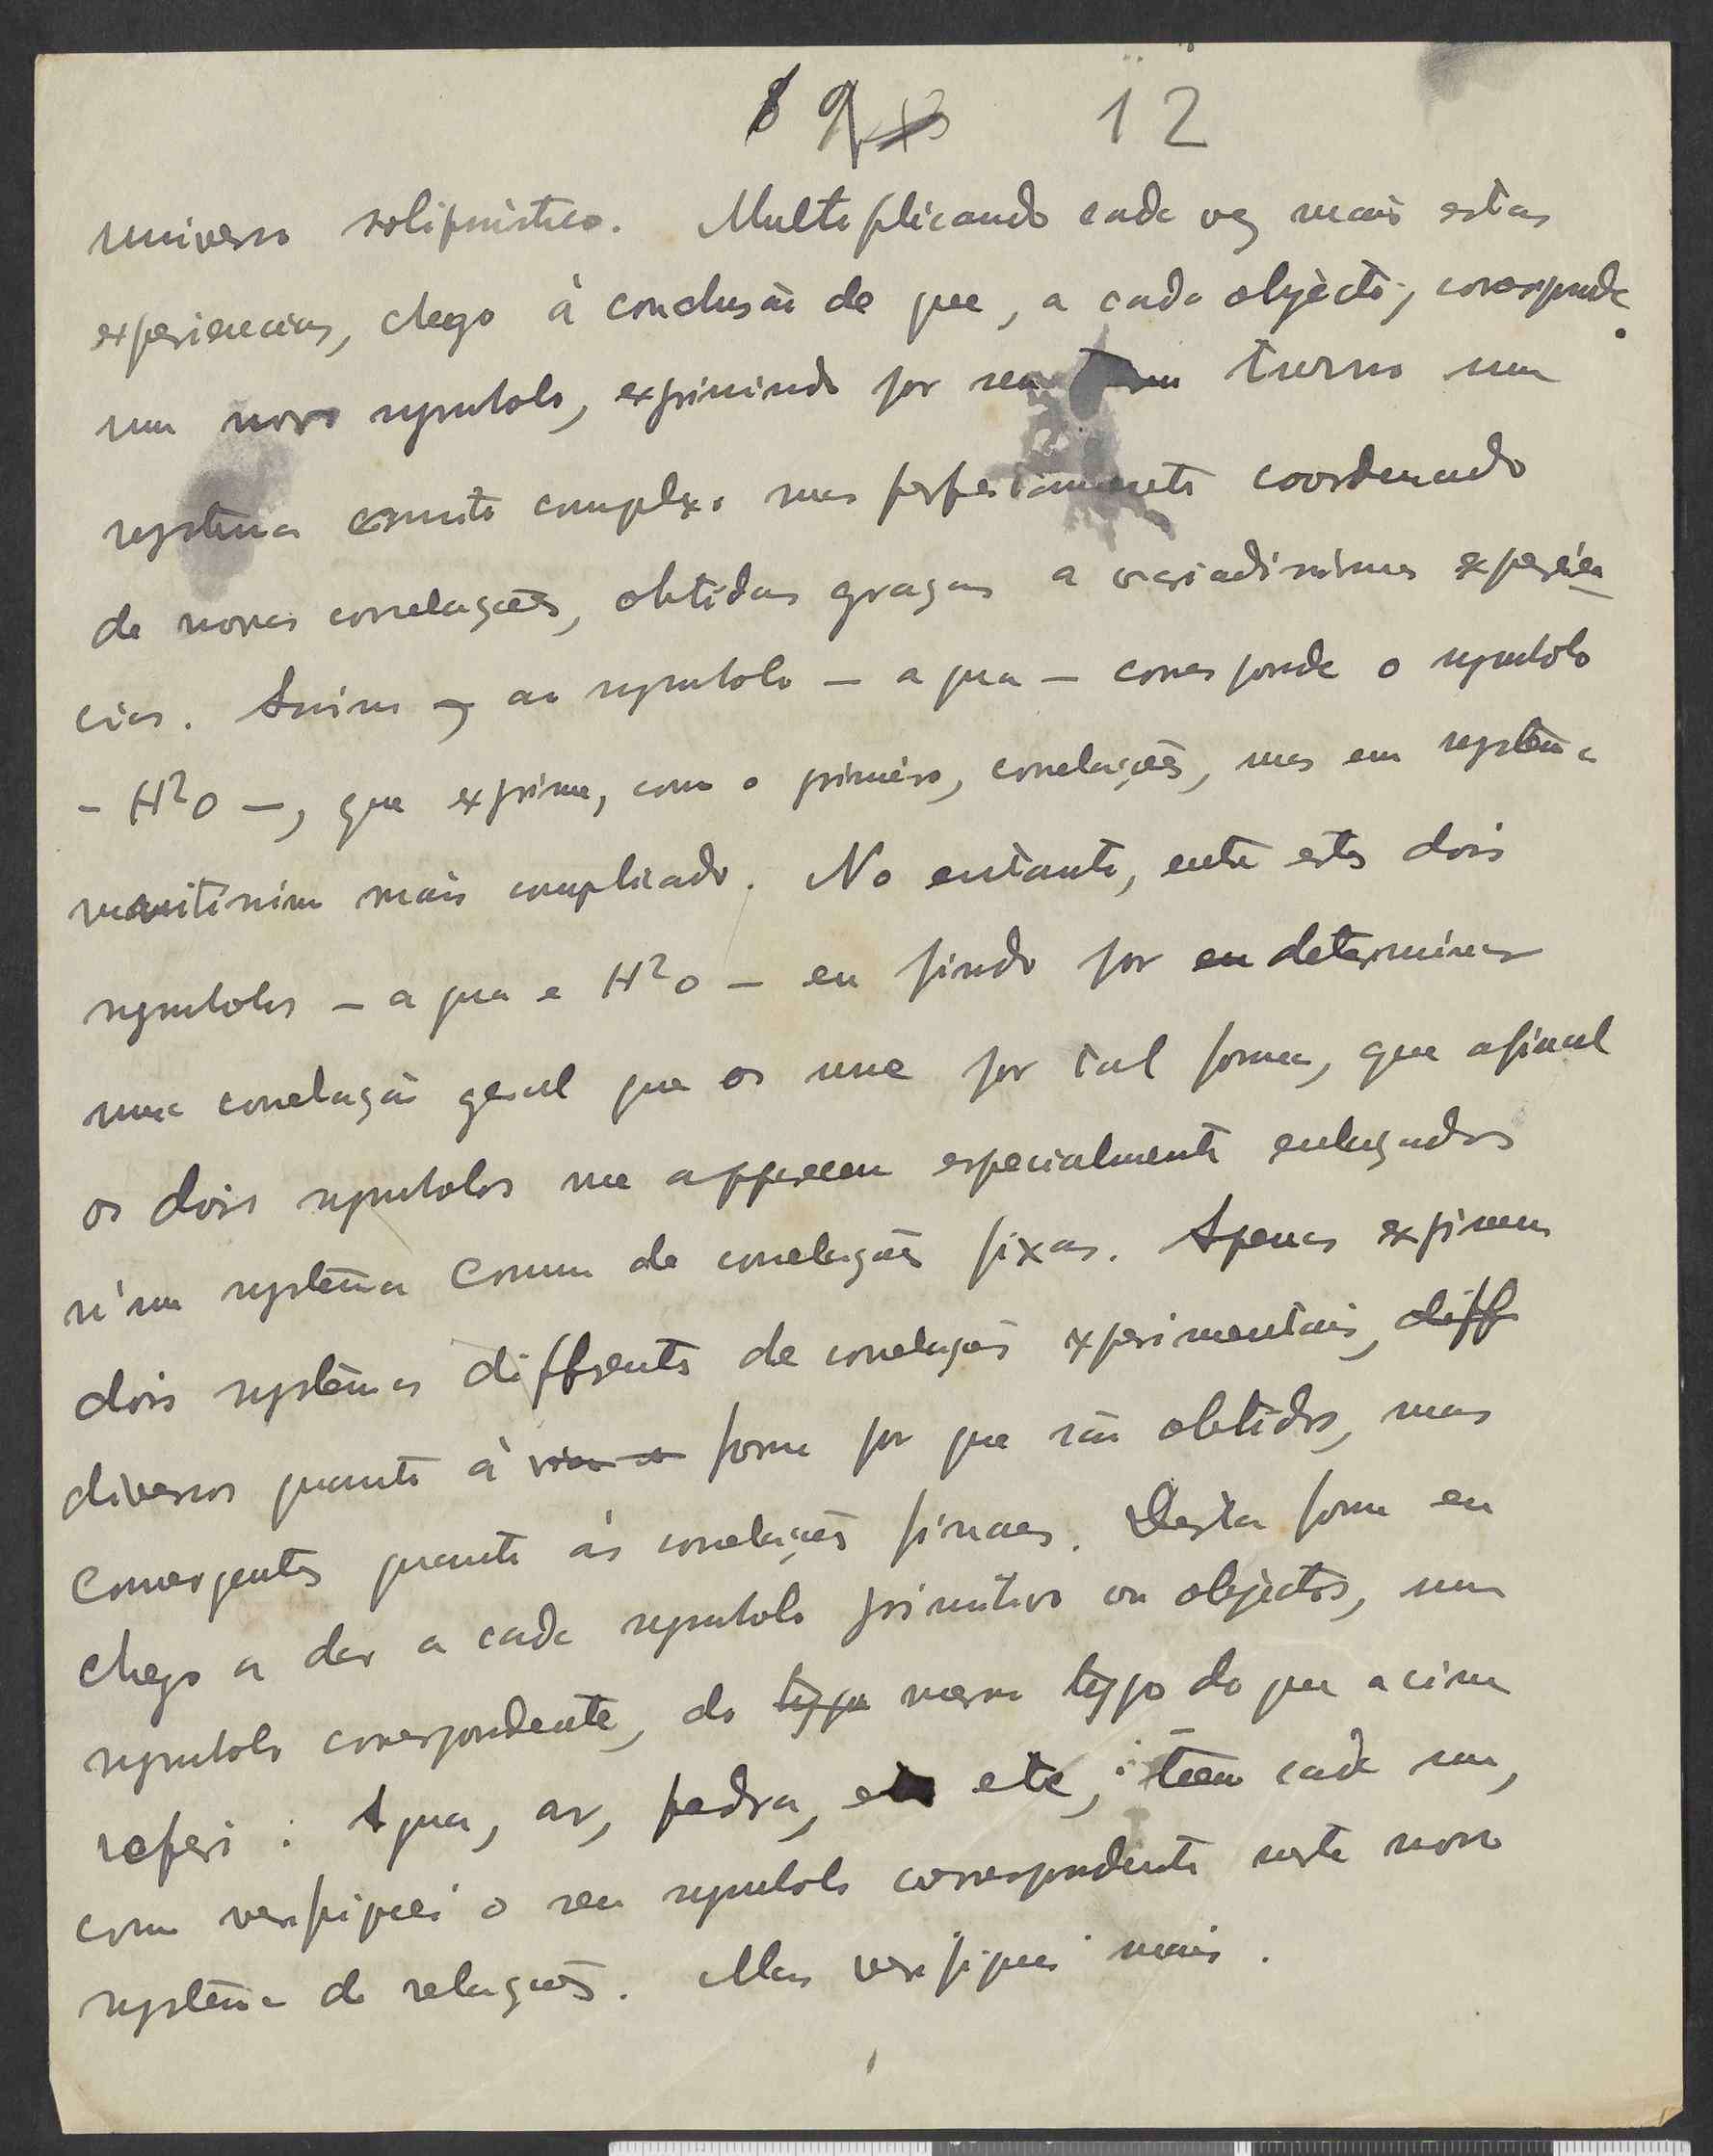 9 12
universo solipsistico. Multiplicando cada vez mais estas
experiencias, chego à conclusão de que, a cada objècto, corresponde
um novo symbolo, exprimindo por seu turno um
systema muito complexo mas perfeitamente coordenado
de novas correlações, obtidas graças a variadissimas experiên
cias. Assim ao symbolo — agua — corresponde o symbolo
— H²O —, que exprime, como o primeiro, correlações, mas em systêma
muitissimo mais complicado. No entanto, entre estes dois
symbolos — agua e H²O — eu findo por determinar
uma correlação geral que os une por tal forma, que afinal
os dois symbolos me apparecem especialmente enlaçados
n'um systêma comum de correlações fixas. Apenas exprimem
dois systêmas differentes de correlações experimentais, diff
diversos quanto à forma por que são obtidos, mas
convergentes quanto às correlações finaes. Desta forma eu
chego a dar a cada symbolo primitivo ou objectos, um
symbolo correspondente, do typo mesmo typo do que acima
referi : Agua, ar, pedra, etc, têem cada um,
como verifiquei o seu symbolo correspondente neste novo
systêma de relações. Mas verifiquei mais.